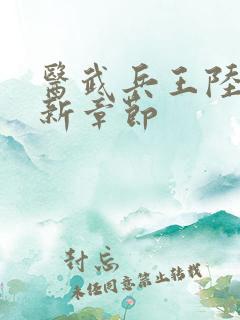 醫武兵王陸
新章節
封忘
未經同意禁止轉載